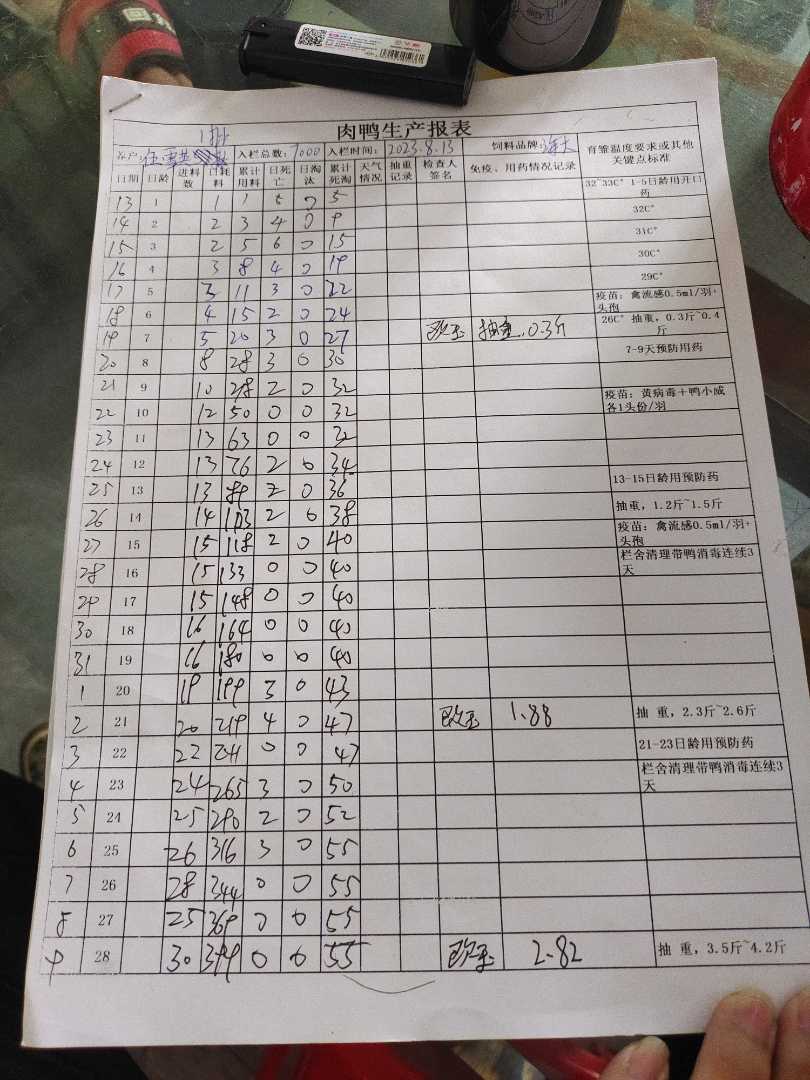 肉鸭生产报表
1批
客户: 入栏总数:7000 入栏时间:2023.8.13 饲料品牌: 育雏温度要求或其他关键点标准
日期 日龄 进料数 日耗料 累计用料 日死亡 日淘汰 累计死淘 天气情况 抽重记录 检查人签名 免疫、用药情况记录
13 1 1 1 5 0 5 32~33C° 1-5日龄用开口药
14 2 2 3 4 0 9 32C°
15 3 2 5 6 0 15 31C°
16 4 3 8 4 0 19 30C°
17 5 3 11 3 0 22 29C°
18 6 4 15 2 0 24 疫苗:禽流感0.5ml/羽+头孢
19 7 5 20 3 0 27 抽重,0.3斤 26C° 抽重,0.3斤~0.4斤
20 8 8 28 3 0 30 7-9天预防用药
21 9 10 28 2 0 32
22 10 12 50 0 0 32 疫苗:黄病毒+鸭小威各1头份/羽
23 11 13 63 0 0 32
24 12 13 76 2 0 34
25 13 13 89 2 0 36 13-15日龄用预防药
26 14 14 103 2 0 38 抽重,1.2斤~1.5斤
27 15 15 118 2 0 40 疫苗:禽流感0.5ml/羽+头孢
28 16 15 133 0 0 40 栏舍清理带鸭消毒连续3天
29 17 15 148 0 0 40
30 18 16 164 0 0 40
31 19 16 180 0 0 40
1 20 19 199 3 0 43
2 21 20 219 4 0 47 1.88 抽 重,2.3斤~2.6斤
3 22 22 241 0 0 47 21-23日龄用预防药
4 23 24 265 3 0 50 栏舍清理带鸭消毒连续3天
5 24 25 290 2 0 52
6 25 26 316 3 0 55
7 26 28 344 0 0 55
8 27 25 369 0 0 55
9 28 30 399 0 0 55 2.82 抽 重,3.5斤~4.2斤